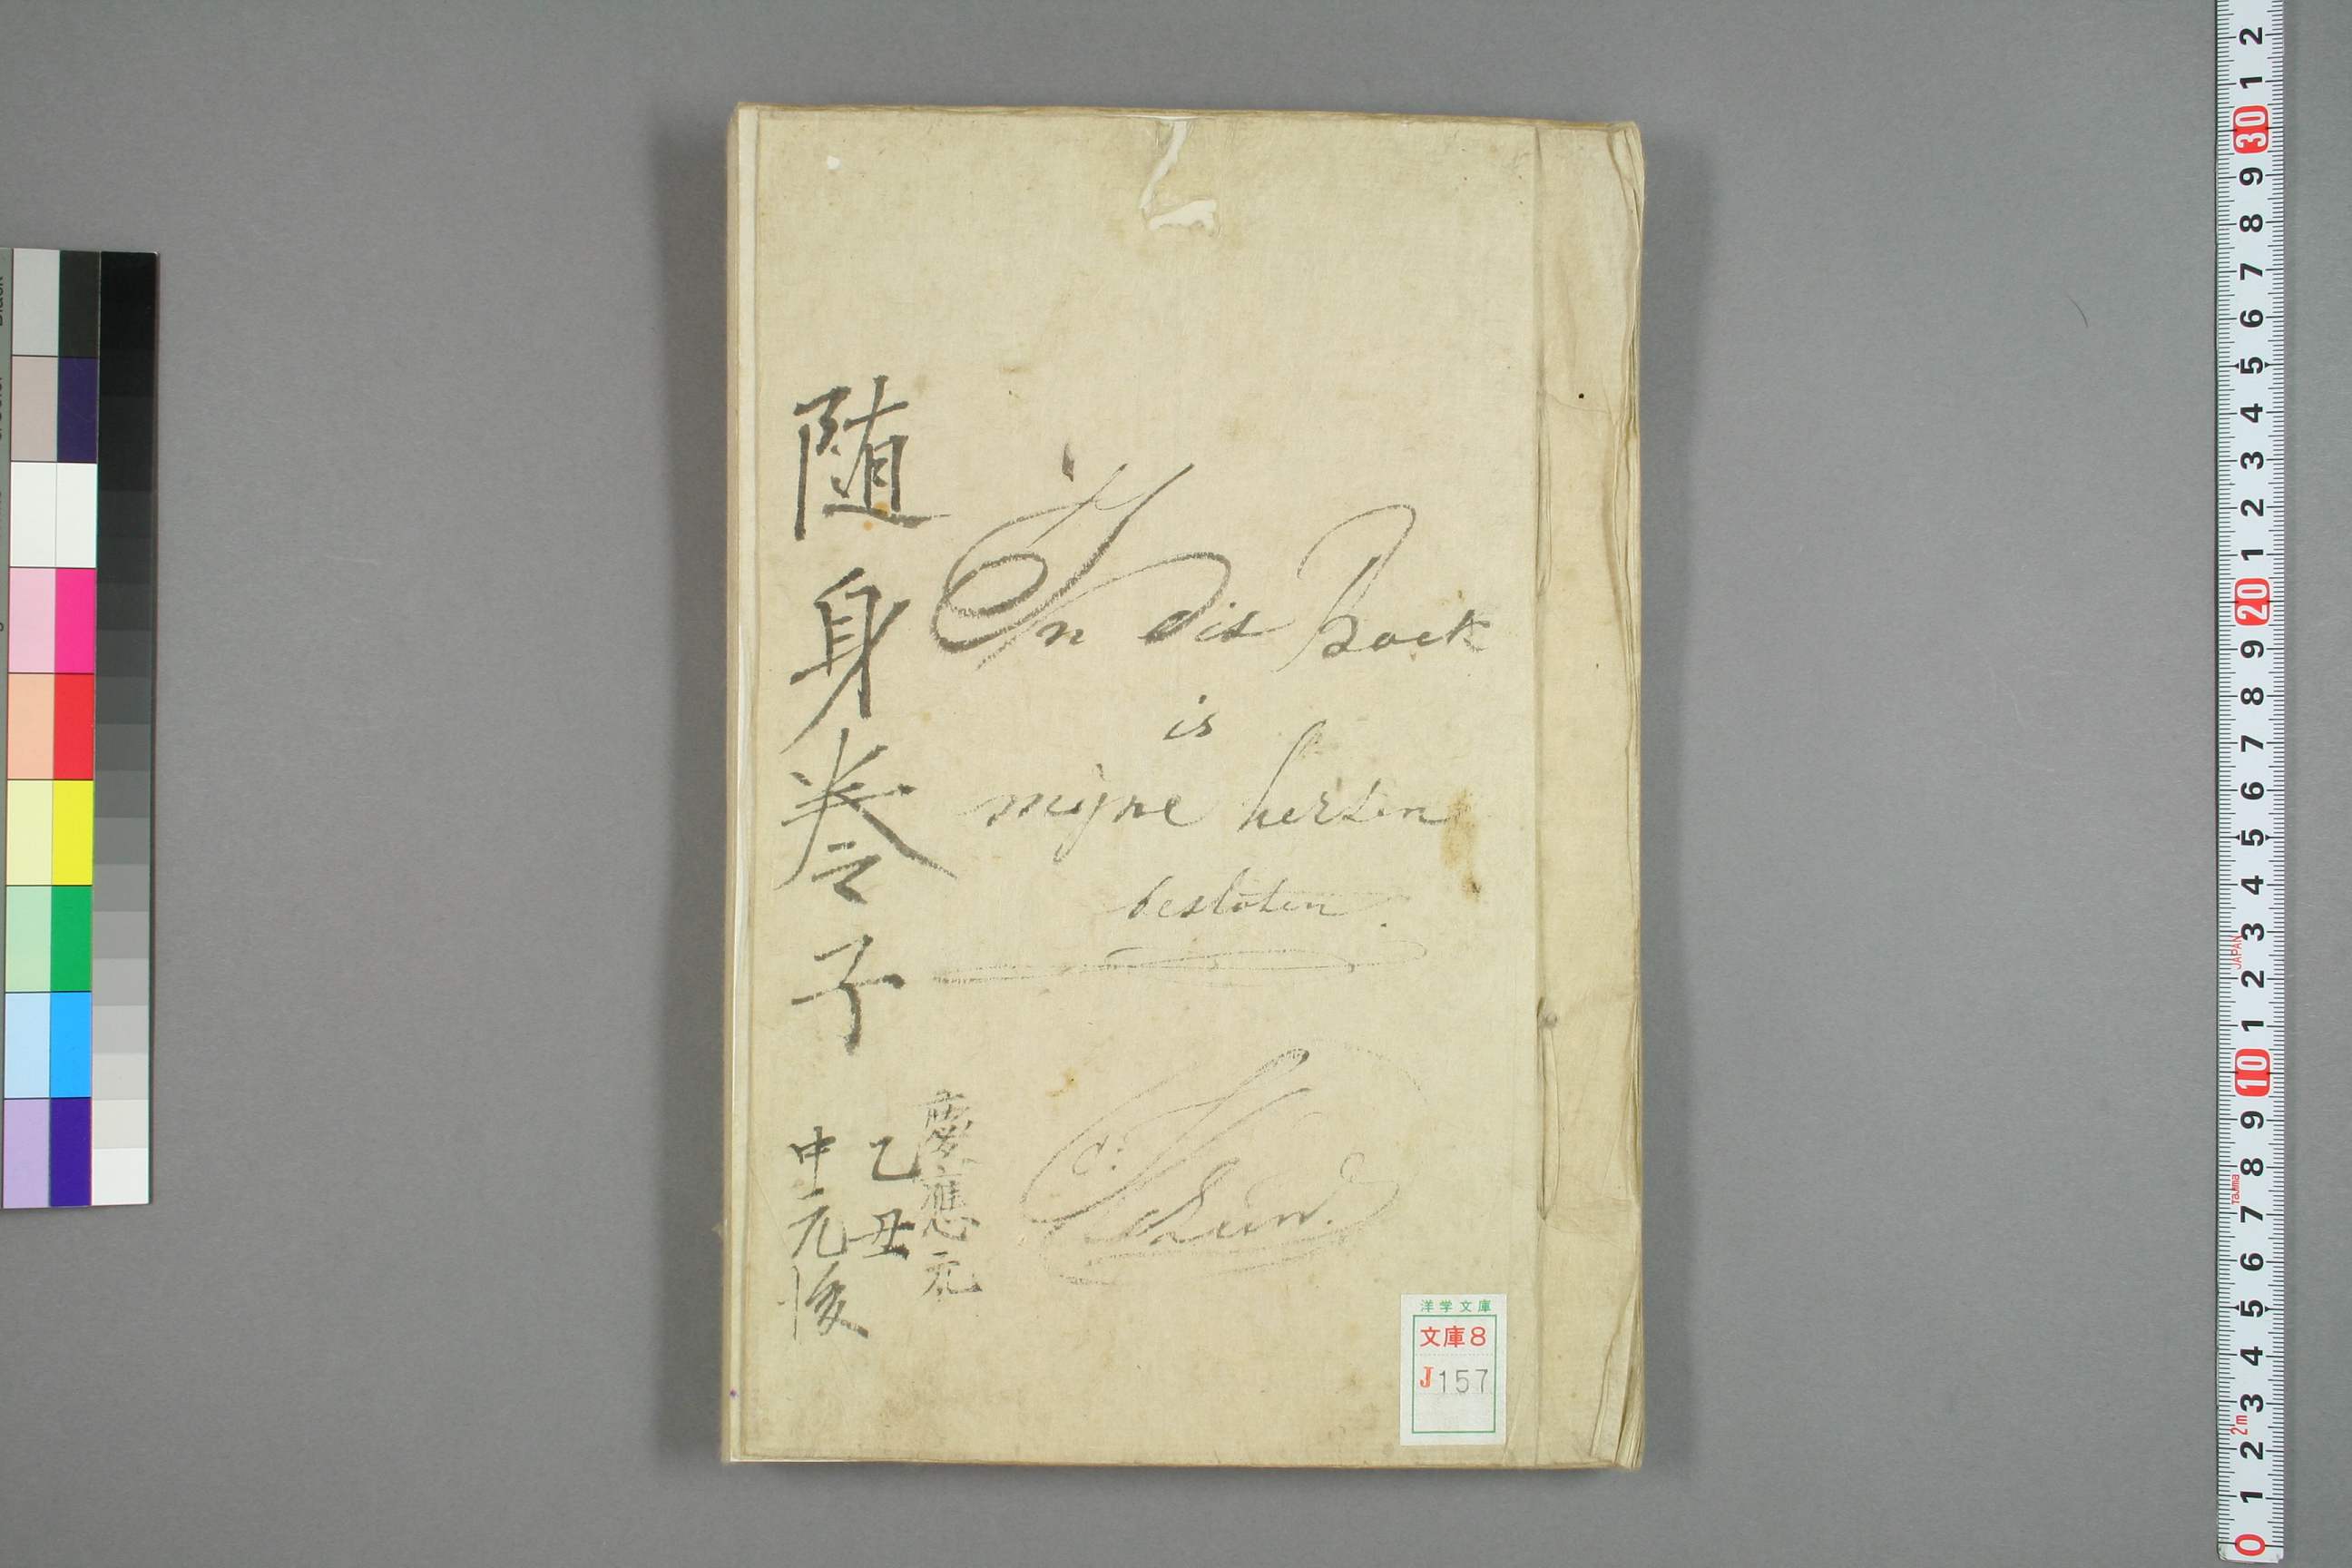 随身巻子
慶應元
乙丑
中元後
In dis boek
is
mijne herten
besloten.
洋学文庫
文庫8
J157